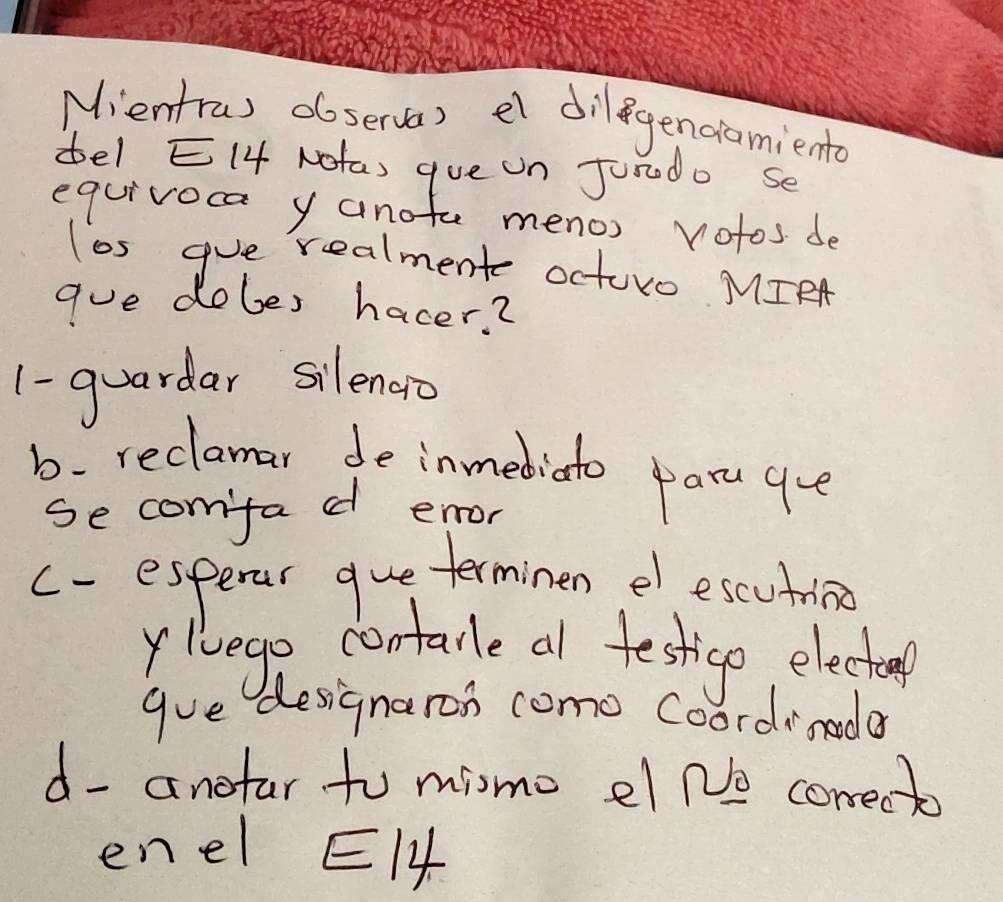 Mientras observas el diligenciamiento
del E14 Notas que un Jurado se
equivoca y anota menos votos de
los que realmente octuvo MIRA
que debes hacer.?
1- guardar silencio
b- reclamar de inmediato para que
se corrija el error
c- esperar que terminen el escutrino
y luego contarle al testigo electoral
que designaron como coordinado
d- anotar tu mismo el Nº correcto
en el E14